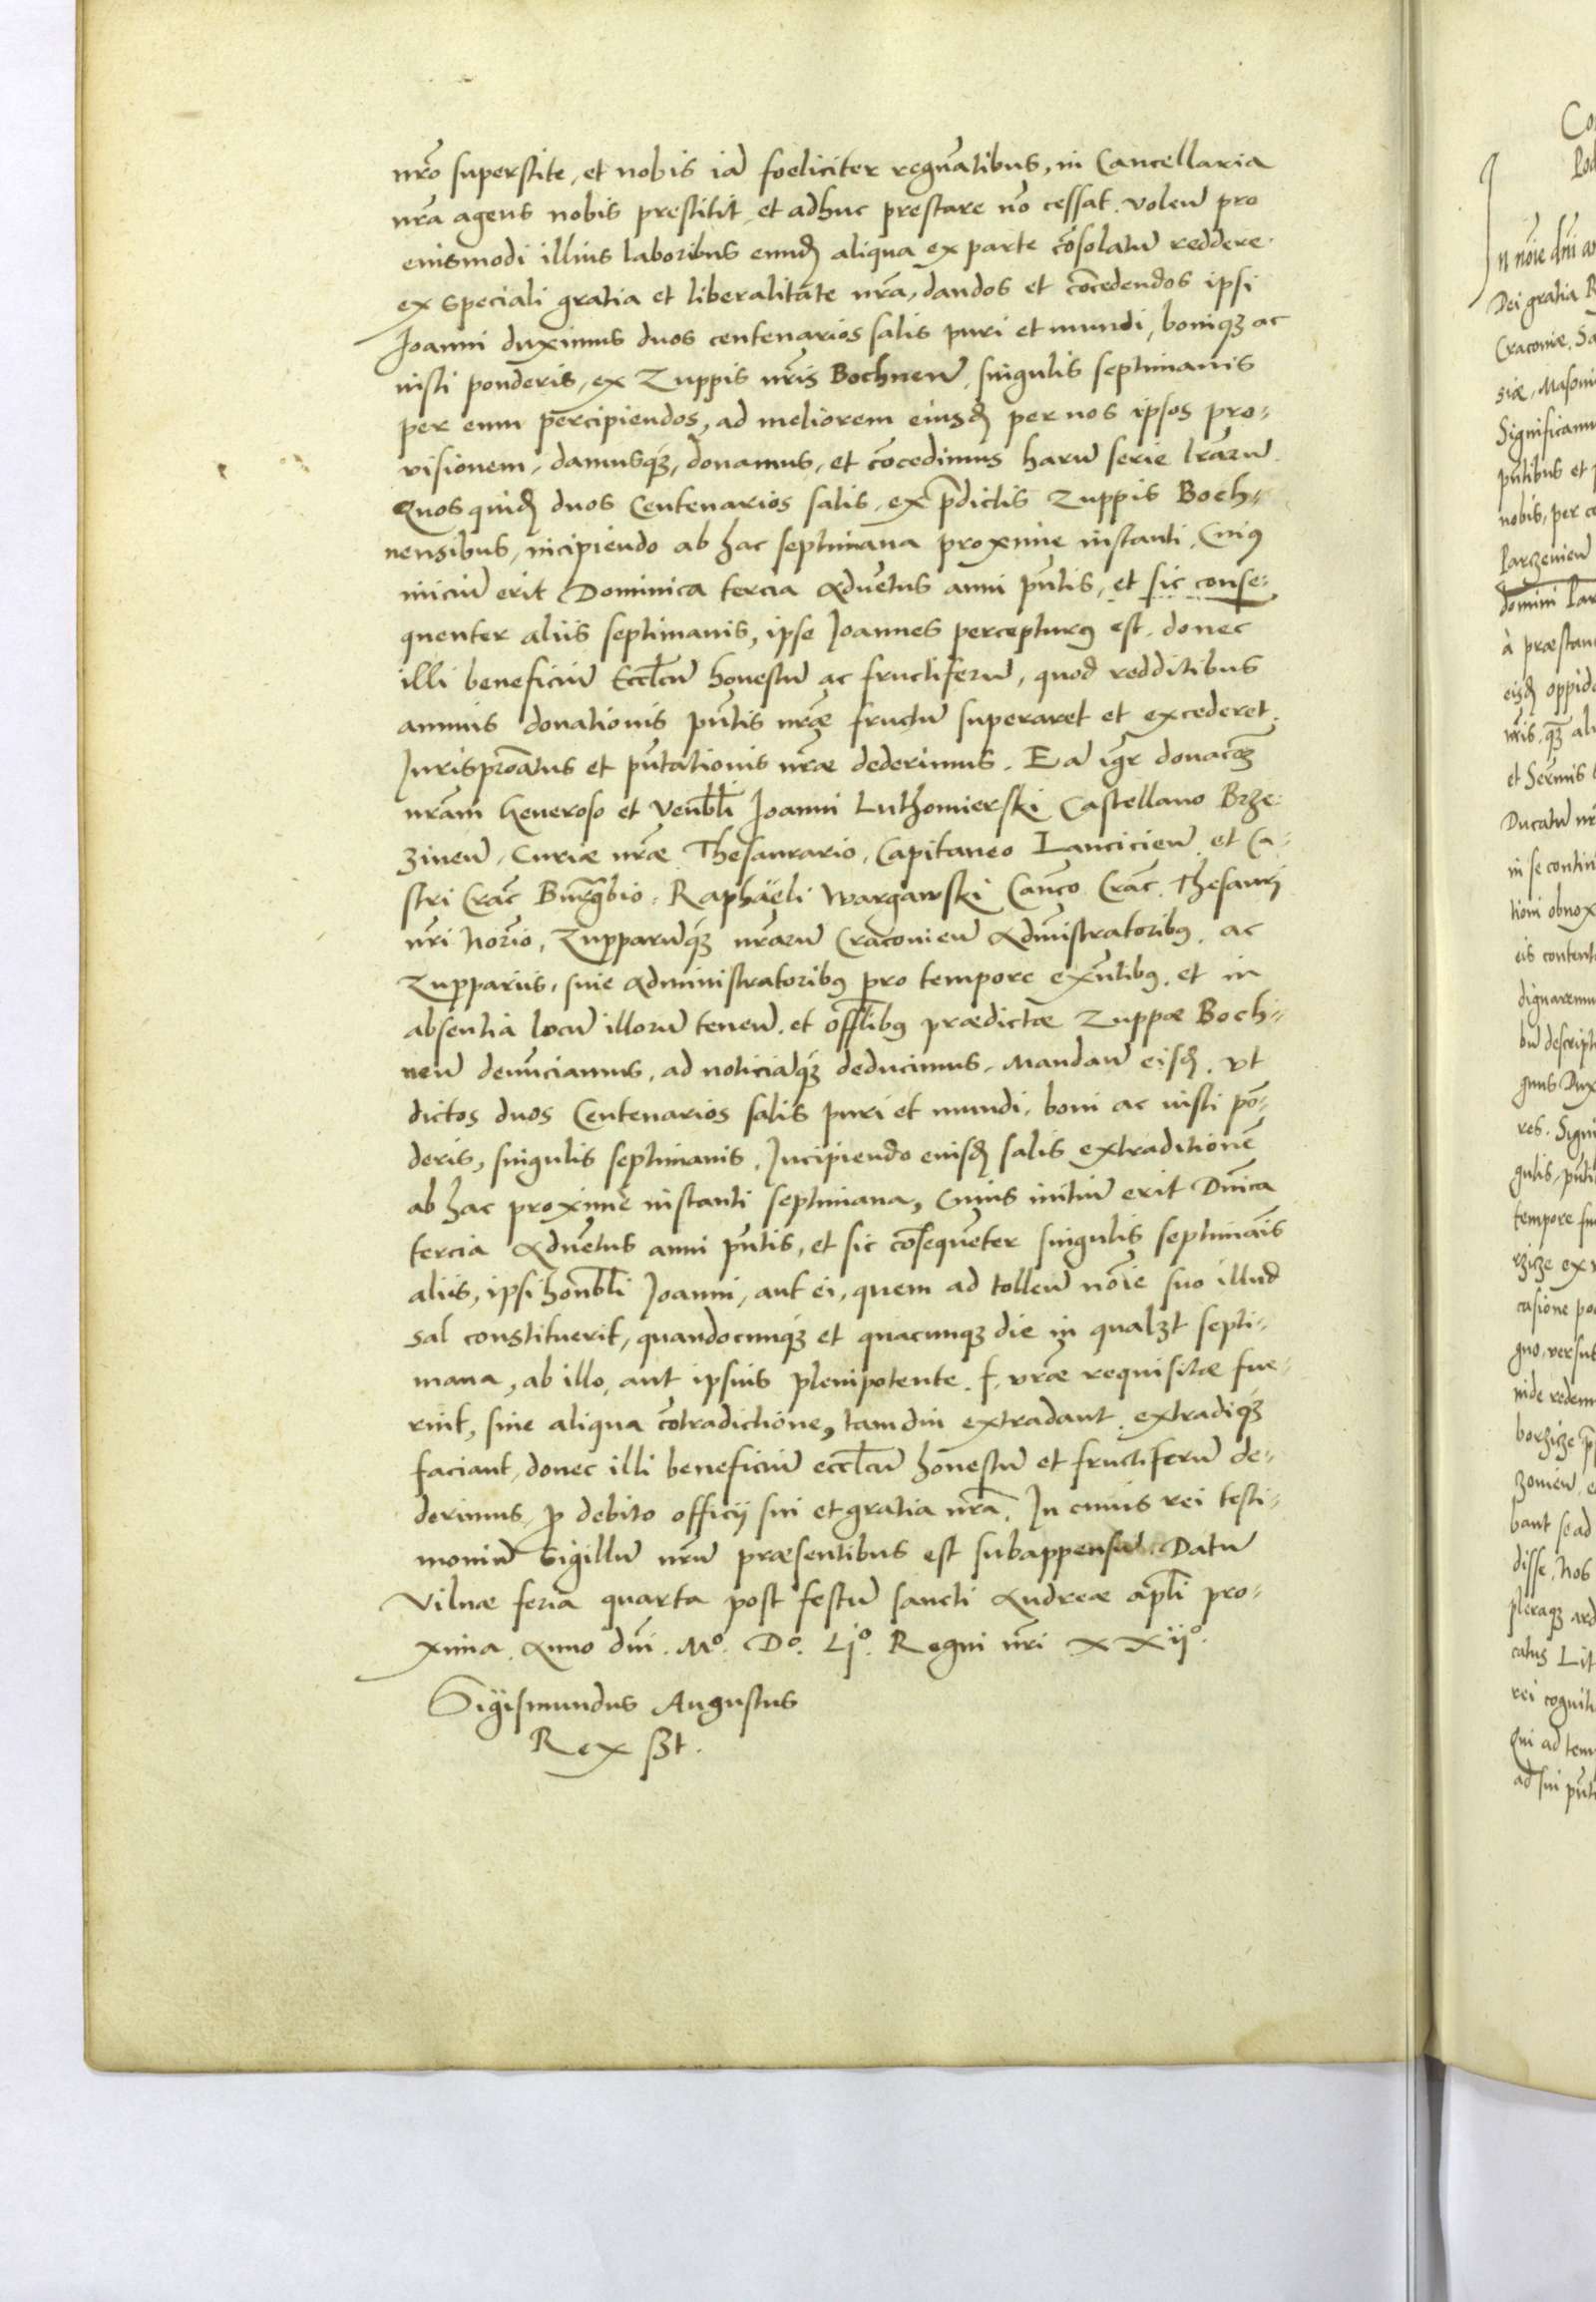 nr̄o superstite, et nobis iā foeliciter regnātibus, in Cancellaria
nr̄a agens nobis prestitit, et adhuc prestare nō cessat. Volen̄ pro
eiusmodi illius laboribus eundē aliqua ex parte cōsolatū reddere.
ex speciali gratia et liberalitate nr̄a, dandos et cōcedendos ipsi
Joanni duximus duos centenarios salis puri et mundi, boniq; ac
iusti ponderis, ex Zuppis nr̄is Bochnen̄, singulis septimanis
per eum percipiendos, ad meliorem eiusdē per nos ipsos pro-
visionem, damusq;, donamus, et cōcedimus harū serie lr̄arū.
Quos quidē duos Centenarios salis, ex p̄dictis Zuppis Boch-
nensibus, incipiendo ab hac septimana proxime instanti, Cuiꝰ
iniciū erit Dominica tercia Advētus anni pn̄tis, et sic conse-
quenter aliis septimanis, ipse Joannes percepturꝰ est, donec
illi beneficiū Eccl̄cū honestū ac fructiferū, quod redditibus
annuis donationis pn̄tis nr̄ae fructū superaret et excederet,
Jurispr̄oatus et pn̄tationis nr̄ae dederimus. Eā igr̄ donac̄oē
nr̄am Generoso et Venb̄li Joanni Luthomierski Castellano Brze-
zinen̄, Curiae nr̄ae Thesaurario, Capitaneo Lancicien̄ et Ca-
stri Crac̄ Burgr̄bio, Raphaëli Wargawski Can̄co Crac̄. Thesauri
nr̄i Nor̄io, Zupparūq; nr̄arū Cracovien̄ Administratoribꝰ, ac
Zuppariis, sive Administratoribꝰ pro tempore exn̄tibꝰ, et in
absentia locū illorū tenen̄, et offl̄ibꝰ praedictae Zuppae Boch-
nen̄ denūciamus, ad noticiāq; deducimus, Mandan̄ eisdē, ut
dictos duos Centenarios salis puri et mundi, boni ac iusti pō-
deris, singulis septimanis, Incipiendo eiusdē salis extraditionē
ab hac proxime instanti septimana, Cuius initiū erit Dn̄ica
tercia Advētus anni pn̄tis, et sic cōsequēter singulis septimāis
aliis, ipsi honb̄li Joanni, aut ei, quem ad tollen̄ noīe suo illud
sal constituerit, quandocunq; et quacunq; die in qualꝫt septi-
mana, ab illo, aut ipsius plenipotente. f. vr̄ae requisitae fue-
rint, sine aliqua cōtradictione, tamdiu extradant, extradiq;
faciant, donec illi beneficiū eccl̄cū honestū et fructiferū de-
derimus, p̄ debito officij sui et gratia nr̄a. In cuius rei testi-
moniū Sigillū nr̄um praesentibus est subappensū. Datū
Vilnae feria quarta post festū sancti Andreae apl̄i pro-
xima, Anno dn̄i. Mº. Dº. Ljº. Regni nr̄i XXijº.
Sigismundus Augustus
Rex sst.
Dei gratia
Cracoviae,
siae, Masovi
Significamu
pn̄tibus et
nobis, per
domini
à praestan
tempore
rei cogniti